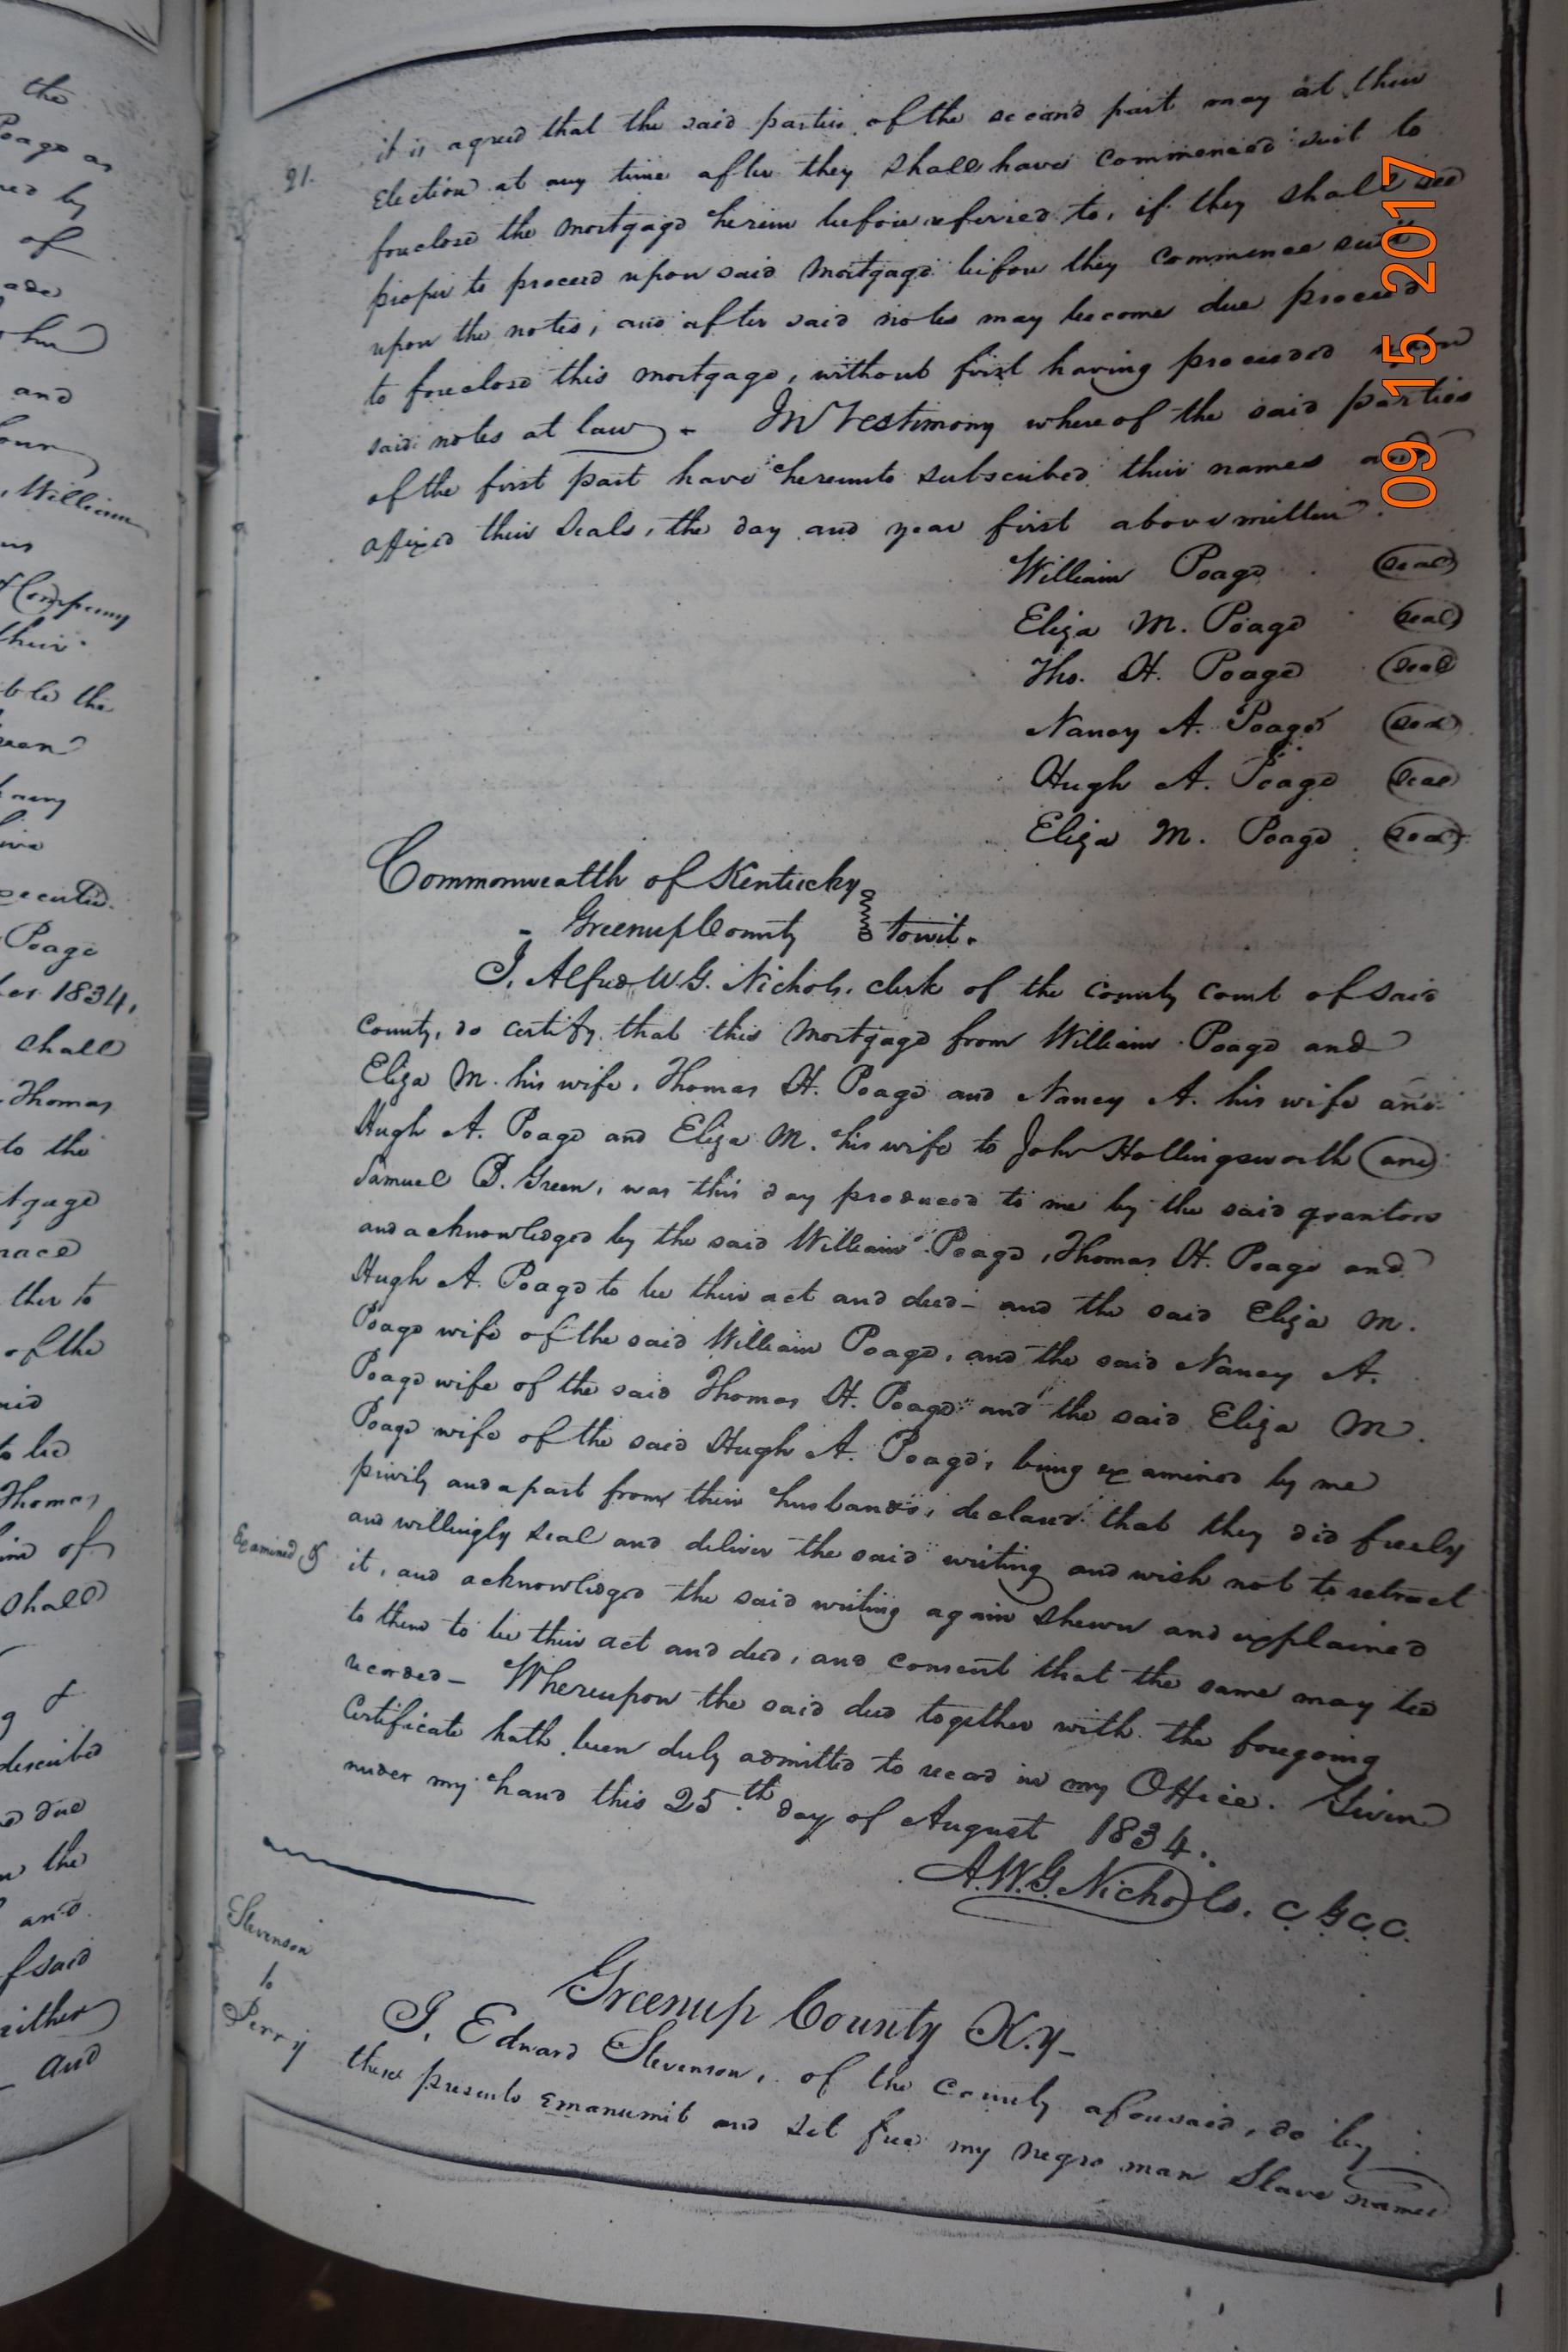 the
Poage as
by
of
and
William
Company
their
ble the
executed.
Poage
1834,
shall
Thomas
to the
ther to
of the
to be
Thomas
of
shall
described
due
the
and
of said
either
and
21.
it is agreed that the said parties of the second part may at their
Election at any time after they shall have commenced suit to
foreclose the mortgage herein before referred to, if they shall see
proper to proceed upon said mortgage before they commence suit
upon the notes; and after said notes may become due proceed
to foreclose this mortgage, without first having proceeded upon
said notes at law - In Testimony whereof the said parties
of the first part have hereunto subscribed their names and
affixed their Seals, the day and year first above written.
William Poage seal
Eliza M. Poage seal
Tho. H. Poage seal
Nancy A. Poage seal
Hugh A. Poage seal
Eliza M. Poage seal
Commonwealth of Kentucky
Greenup County towit.
I, Alfred W. G. Nichols, clerk of the county court of said
county, do certify that this mortgage from William Poage and
Eliza M. his wife, Thomas H. Poage and Nancy A. his wife and
Hugh A. Poage and Eliza M. his wife to John Hollingsworth and
Samuel B. Green, was this day produced to me by the said grantors
and acknowledged by the said William Poage, Thomas H. Poage and
Hugh A. Poage to be their act and deed - and the said Eliza M.
Poage wife of the said William Poage, and the said Nancy A.
Poage wife of the said Thomas H. Poage and the said Eliza M.
Poage wife of the said Hugh A. Poage, being examined by me
privily and apart from their husbands, declared that they did freely
and willingly seal and deliver the said writing and wish not to retract
Examined &
it, and acknowledged the said writing again shewn and explained
to them to be their act and deed, and consent that the same may be
recorded - Whereupon the said deed together with the foregoing
Certificate hath been duly admitted to record in my Office. Given
under my hand this 25.th day of August 1834.
A. W. G. Nichols. C. G. C. C.
Stevenson
to
Perry
Greenup County Ky -
I, Edward Stevenson, of the county aforesaid, do by
these presents emanumit and set free my negro man Slave named
09 15 2017